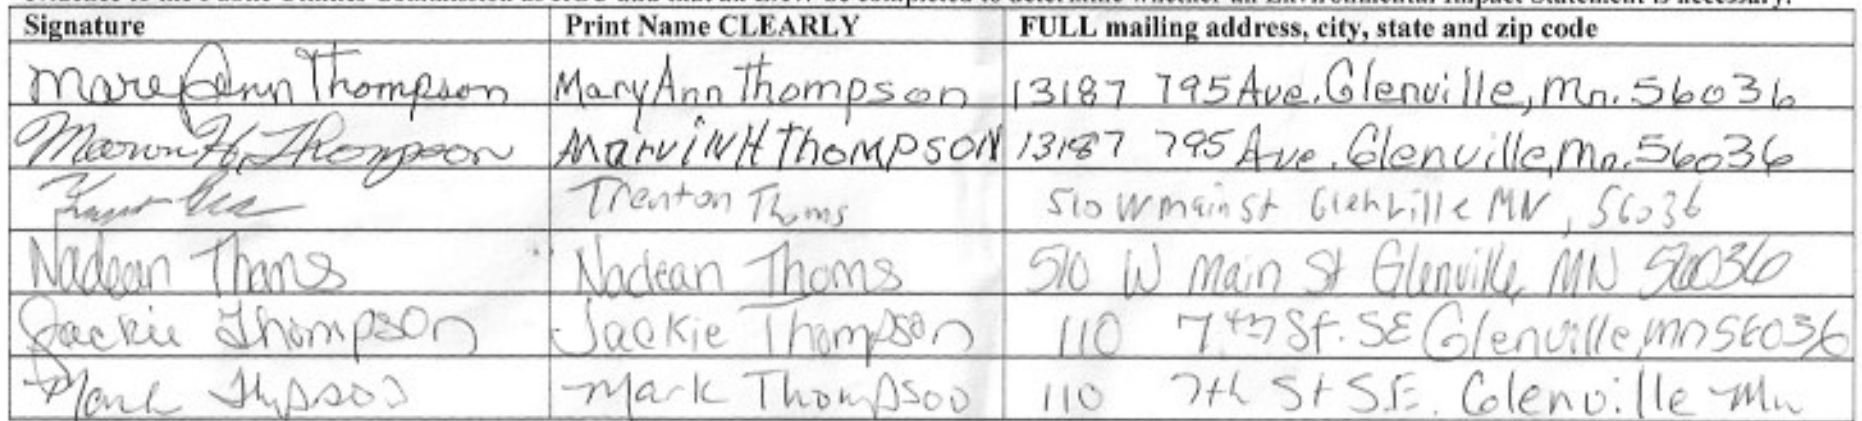 Signature Print Name CLEARLY FULL mailing address, city, state and zip code
Mary Ann Thompson MaryAnn Thompson 13187 795 Ave. Glenville, Mn. 56036
Marvin H. Thompson MarviN H ThoMPSON 13187 795 Ave. Glenville, Mn. 56036
Trenton Thoms 510 W main st Glenville MN, 56036
Nadean Thoms Nadean Thoms 510 W Main St Glenville, MN 56036
Jackie Thompson Jackie Thompson 110 7th St. SE Glenville, mn 56036
Mark Thompson Mark Thompson 110 7th St S.E. Glenville Mn